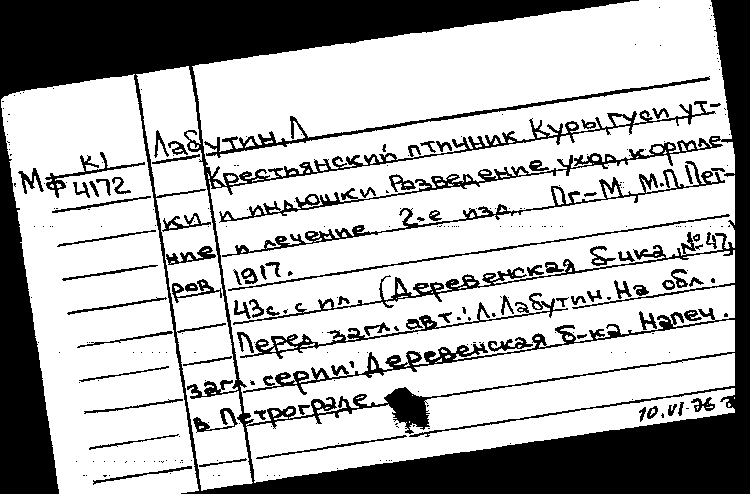 Лабутин, Л
Мф К1
4172
Крестьянский птичник. Куры, гуси, ут-
ки и индюшки. Разведение, уход, кормле-
ние и лечение. 2-е изд. Пг.-М, М.П. Пет-
ров, 1917.
43с. с ил. (Деревенская б-чка, №47)
Перед загл. авт.: Л. Лабутин. На обл.
загл. серии: Деревенская б-ка. Напеч.
в Петрограде.
10.VI.76